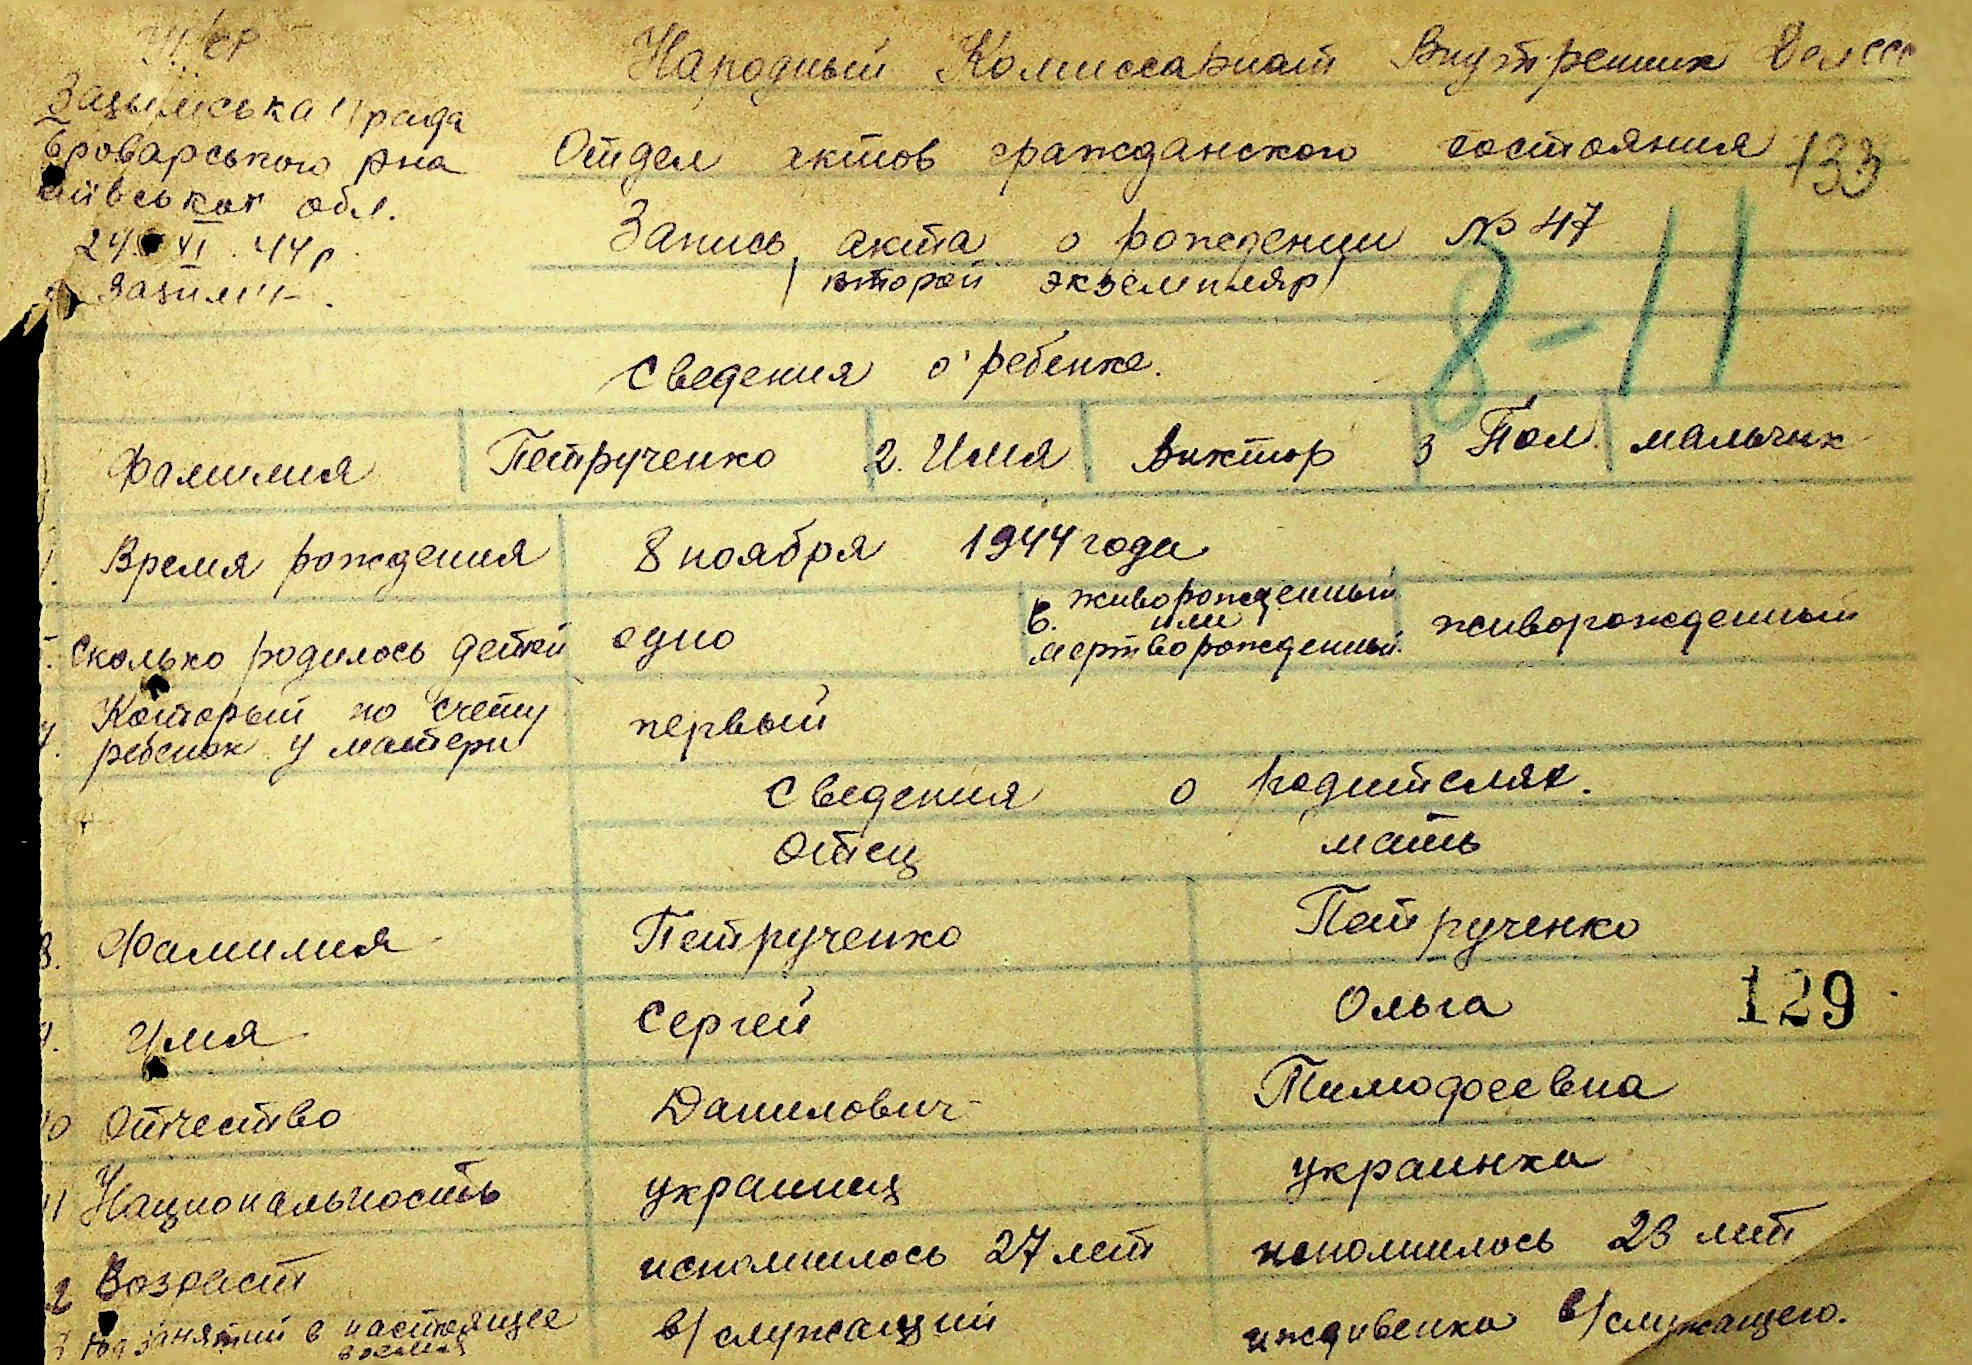 Народный Комиссариат Внутренних Дел СССР
Зазимська с/рада
Броварського р-на
Київської обл.
44р
Зазим'я
Отдел актов гражданского состояния 133
Запись акта о рождении № 47
/второй экземпляр/
8-11
Сведения о ребенке.
Фамилия Петрученко 2. Имя Виктор 3 Пол мальчик
Время рождения 8 ноября 1944 года
Сколько родилось детей одно 6. живорожденный или мертворожденный живорожденный
Который по счету ребенок у матери первый
Сведения о родителях.
Отец мать
8. Фамилия Петрученко Петрученко
9. Имя Сергей Ольга
129
10 Отчество Данилович Тимофеевна
11 Национальность украинец украинка
2 Возраст исполнилось 27 лет исполнилось 23 лет
3 Род занятий в настоящее время в/служащий иждивенка в/служащего.